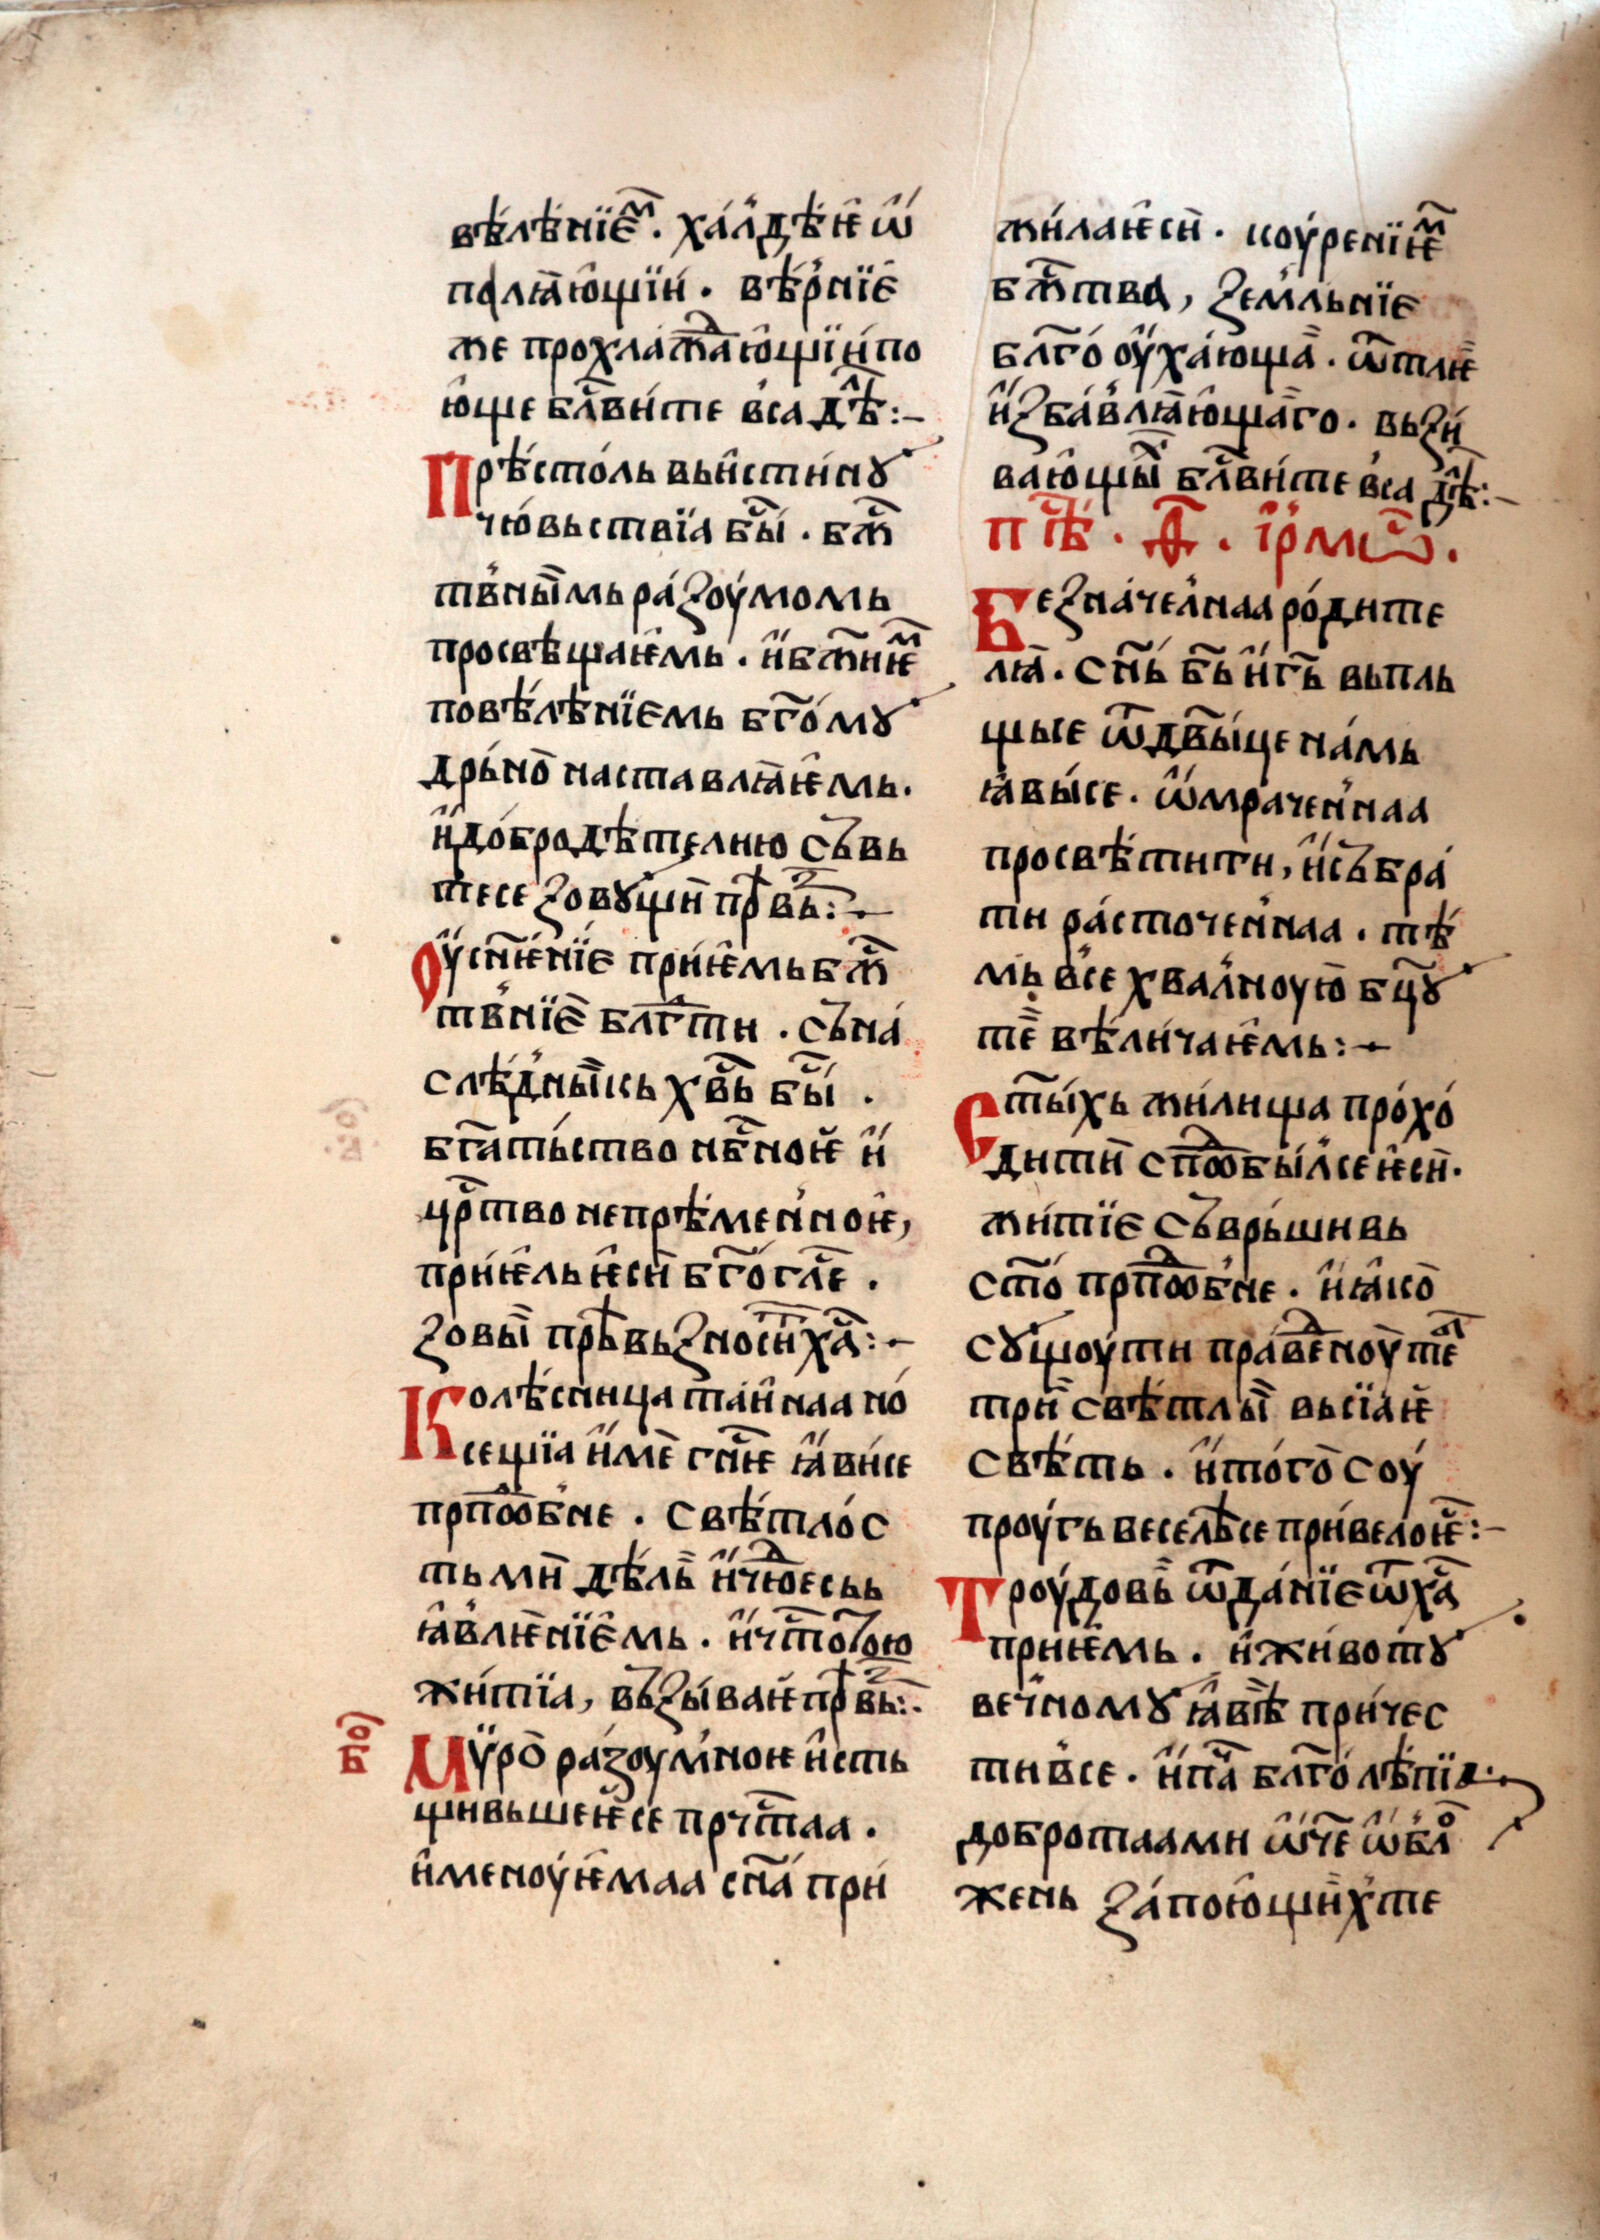 вѣ́лѣнїє҃ᴹ. ха́лⷣѣ́ѥ ѡ҆́
полꙗ҆ю҆́щїи. вѣ́рнїє
же прохлажⷣа́ю҆щїи по
ю҆ще бл҃ви́те в҆са дѣ̑:–
Прѣ́сто́ль вьи҆сти́нꙋ
чю́вьствїа бы҃ . бж҃
тв҆ны́мь ра́зоу́момь
просвѣщаѥ҆мь . и҆ бж҃нїѥᴹ
повѣ́лѣнїємь бг҃о́мꙋ
дрь́но наставлꙗ҆ѥ҆мь.
и҆ до́бродѣтелию съвь
тесе зовꙋщи прⷣвь:–
Оу҆сп҃е́нїє прїѥ҆мь бж҃
тв҆нїє бл҃гⷣти . съна́
слѣ́дны́кь хв҃ь бы҃ .
бг҃ать́ство нб҃ноѥ и҆
црⷭ҇тво непрѣ́ме́нноѥ,
прїѥ҆ль ѥ҆си бг҃о́гл҃е .
зовы̀ прѣ́вьзноси́тⷷ ха҃:–
Колѣ́сни́ца таи҆наа но́
сещїа и҆ме гн҃ѥ ꙗ҆ви́се
прпⷣобне . свѣ́тло́с
тьми дѣ́ль и҆ чюⷣесьь
ꙗ҆влѥ́нїѥ҆мь . и҆ чт҃отою
жи́тїа, възы́ваѥ прⷣвь:.
бо҃
Мѵ҆ро ра́зоу́мноѥ и҆сть
щивьшеѥ҆се прчⷭ҇таа .
и҆меноу́ѥ҆маа сп҃а́ при́
жи́лаѥ҆си . коу́ренїѥᴹ
бж҃тва, земльнїє
бл҃го́ оу҆ха́юща . ѿтлѥ
и҆збавлꙗ҆ю҆щаго . вьзи́
ваю҆щы̀ бл҃ви́те в҆са дѣ̑:–
пѣⷭ҇ . ѳ҃ . і҆рмѡⷭ҇ .
Безна́че́лнаа ро́дите
лꙗ . сн҃ь бь҃ и҆ гь҃ вьпль
щьıе ѿдв҃ы́це на́мь
ꙗ҆вы́се . ѡ҆мра́че́ннаа
просвѣ́тити, и҆събра́
ти ра́сточе́ннаа . тѣ́
мь в҆се хва́лноую бц҃ꙋ
те вѣ́лича́ѥ҆мь:–
Ст҃ы́хь жи́лища про́хо́
дити спⷣобы́лсе ѥ҆си.
жи́тїє съврь́шивь
ст҃о́ прпⷣобне . и҆ ꙗ҆ко
сꙋщоу́ти праⷣвено́у теˡ
три свѣ́тлы́ вьсїаѥ
свѣ́ть . и҆ то́го соу
проу́гь веселѣ́се при́велоѥ҃:–
Троу́довь ѿда́нїє ѿ ха҃
приѥ҆мь . и҆ живо́тꙋ
вечномꙋ ꙗ҆вѣ́ при́чес
ти́в҆се . и҆ па҃ бл҃го́ лѣ́пїа.
добротаами ѡ҆ч҃е ѡ҆бло
жень за́пою҆щи́хте